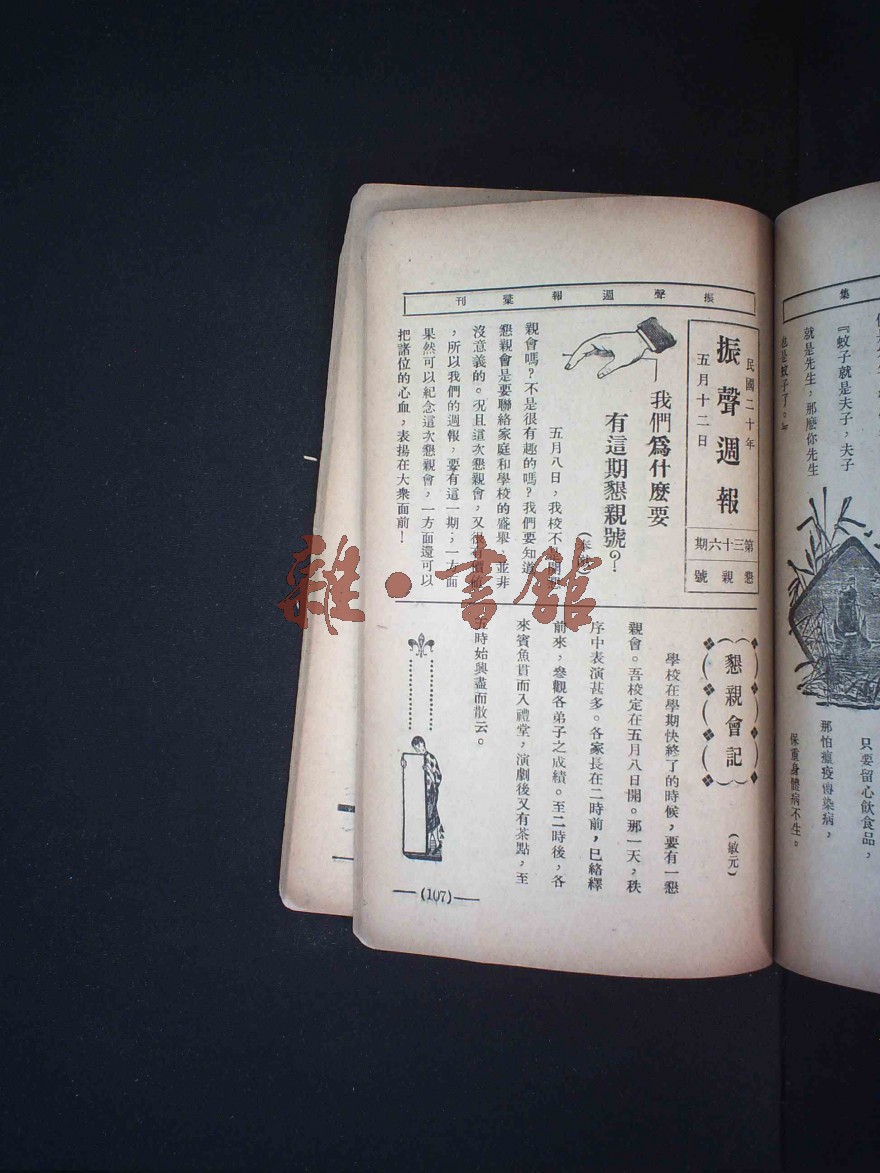 集
『蚊子就是夫子，夫子
就是先生，那麼你先生
也是蚊子了。』
只要留心飲食品，
那怕瘟疫傳染病，
保重身體病不生。
振聲週報彙刊
民國二十年
五月十二日
振聲週報
第三十六期
懇親號
我們爲什麼要
有這期懇親號？
五月八日，我校不是開懇
親會嗎？不是很有趣的嗎？我們要知道
懇親會是要聯絡家庭和學校的盛舉，並非
沒意義的。況且這次懇親會，又很有價值
，所以我們的週報，要有這一期；一方面
果然可以紀念這次懇親會，一方面還可以
把諸位的心血，表揚在大衆面前！
懇親會記
（敏元）
學校在學期快終了的時候，要有一懇
親會。吾校定在五月八日開。那一天，秩
序中表演甚多。各家長在二時前，已絡繹
前來，參觀各弟子之成績。至二時後，各
來賓魚貫而入禮堂，演劇後又有茶點，至
五時始興盡而散云。
(107)
雜·書館